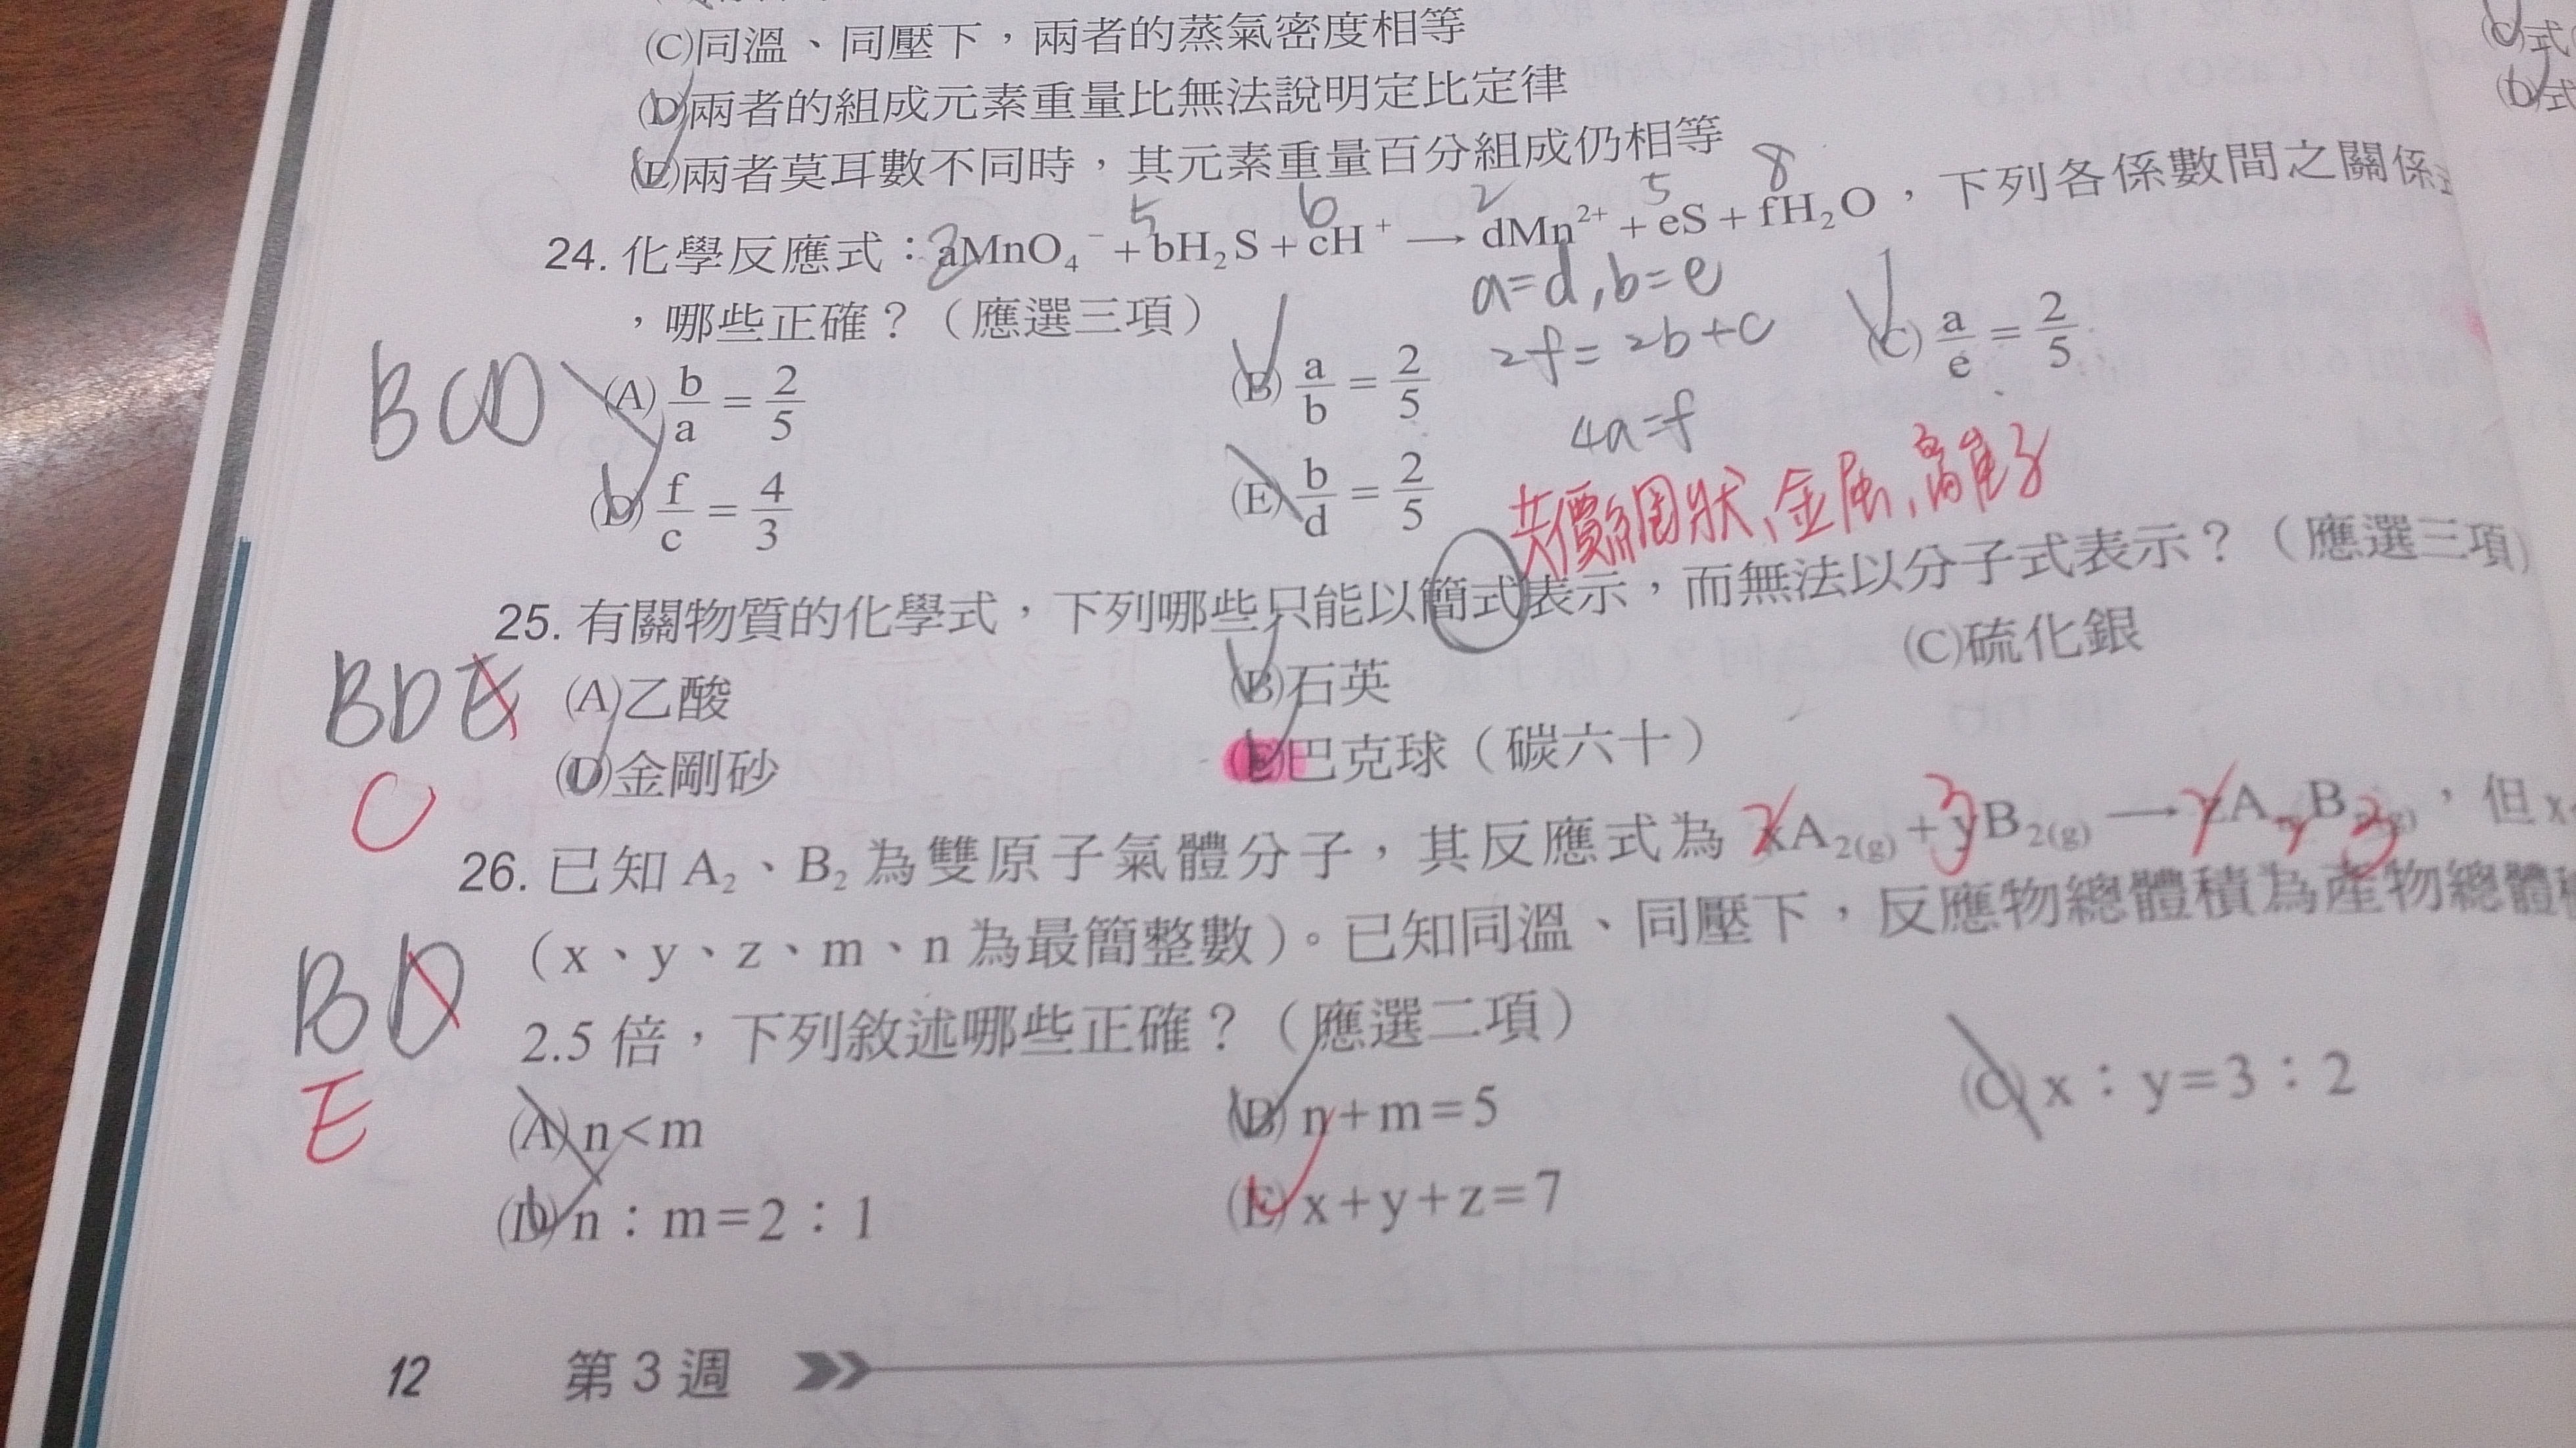 (C)同溫、同壓下，兩者的蒸氣密度相等
(D)兩者的組成元素重量比無法說明定比定律
(E)兩者莫耳數不同時，其元素重量百分組成仍相等
2 5 6 2 5 8
24. 化學反應式：aMnO₄⁻ + bH₂S + cH⁺ → dMn²⁺ + eS + fH₂O，下列各係數間之關係
，哪些正確？（應選三項）
a=d, b=e
2f=2b+c
4a=f
BCD
(A) b/a = 2/5 (B) a/b = 2/5 (C) a/e = 2/5
(D) f/c = 4/3 (E) b/d = 2/5
共價網狀、金屬、離子
25. 有關物質的化學式，下列哪些只能以簡式表示，而無法以分子式表示？（應選三項）
BDE
C
(A)乙酸 (B)石英 (C)硫化銀
(D)金剛砂 (E)巴克球（碳六十）
26. 已知 A₂、B₂ 為雙原子氣體分子，其反應式為 xA₂(g) + yB₂(g) → zA B (g)，但 x
（x、y、z、m、n 為最簡整數）。已知同溫、同壓下，反應物總體積為產物總體積
2.5 倍，下列敘述哪些正確？（應選二項）
BD
E
(A) n<m (B) n+m=5 (C) x：y=3：2
(D) n：m=2：1 (E) x+y+z=7
12 第 3 週
(C)式
(D)式